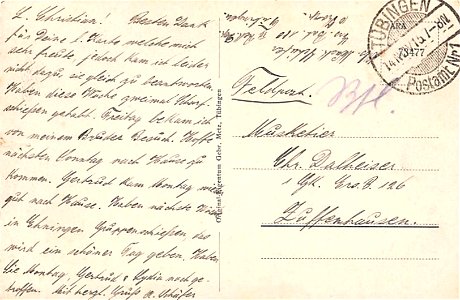 L. Christian! Besten Dank
für Deine l. Karte welche mich
sehr freute, jedoch kam ich leider
nicht dazu, sie gleich zu beantworten.
Haben diese Woche zweimal Scharf-
schießen gehabt. Freitag bekam ich
von meinem Bruder Besuch. Hoffe
nächsten Sonntag nach Hause zu
kommen. Gertrud kam Sonntag wieder
gut nach Hause. Haben nächste Woche
in Ehningen Gruppenschießen, das
wird ein schöner Tag geben. Haben
Sie Sonntag, Gertrud & Lydia noch ge-
troffen. Mit herzl. Gruß K. Schäfer
Original-Eigentum Gebr. Metz, Tübingen
TÜBINGEN
Postamt Nr. 1
Feldpost.
Musketier
Chr. Dalheiser
Ers. B. 126
Zuffenhausen.